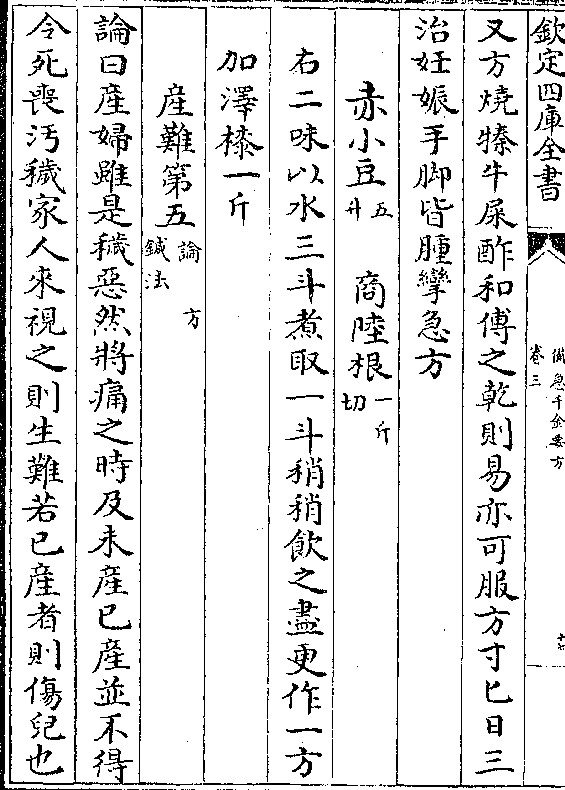 欽定四庫全書
備急千金要方
卷三
十四
又方燒㹀牛屎酢和傅之乾則易亦可服方寸匕日三
治妊娠手脚皆腫攣急方
赤小豆五升 商陸根一斤切
右二味以水三斗煮取一斗稍稍飲之盡更作一方
加澤𣾰一斤
産難第五論 方 鍼法
論曰産婦雖是穢惡然將痛之時及未産已産並不得
令死喪汚穢家人來視之則生難若已産者則傷兒也